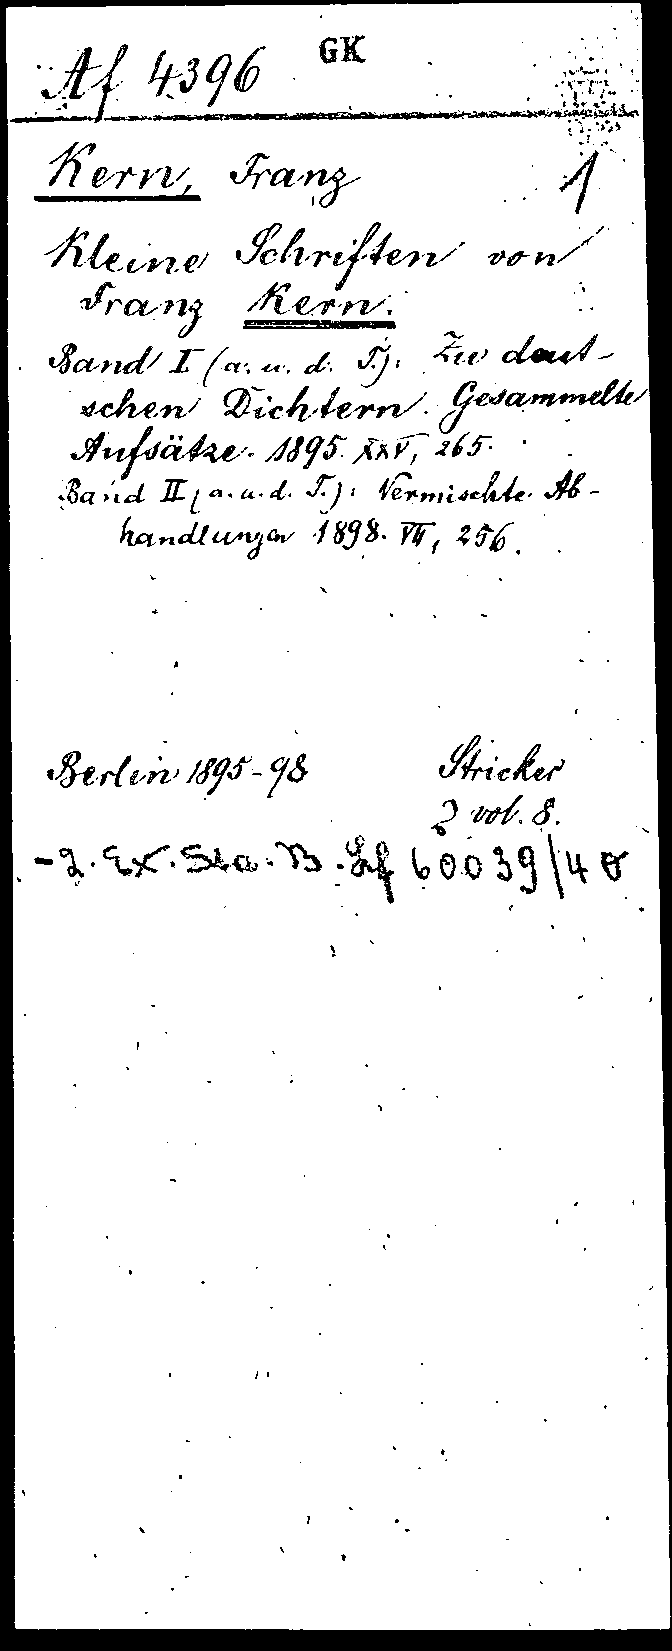 GK
Af 4396
Kern, Franz 1
Kleine Schriften von
Franz Kern.
Band I (a. u. d. T.): Zu deut-
schen Dichtern. Gesammelte
Aufsätze. 1895. XXV, 265.
Band II (a. u. d. T.): Vermischte Ab-
handlungen 1898. VII, 256.
Berlin 1895-98 Stricker
2 vol. 8.
- 2. Ex. Sta. B. 60039/40